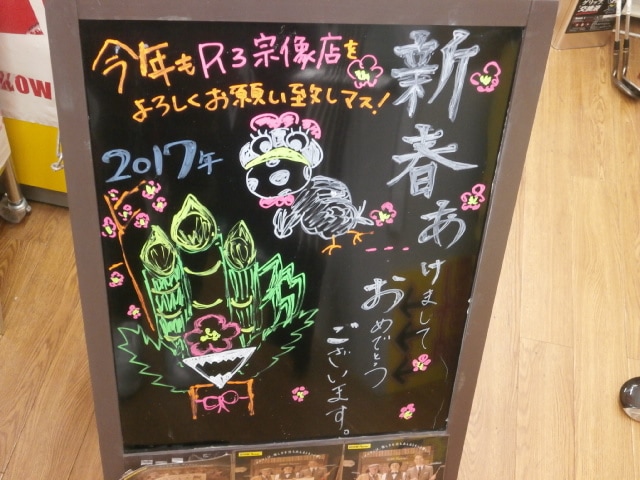 今年もR3宗像店を
よろしくお願い致しマス!
2017年
新春あけまして
おめでとう
ございます。